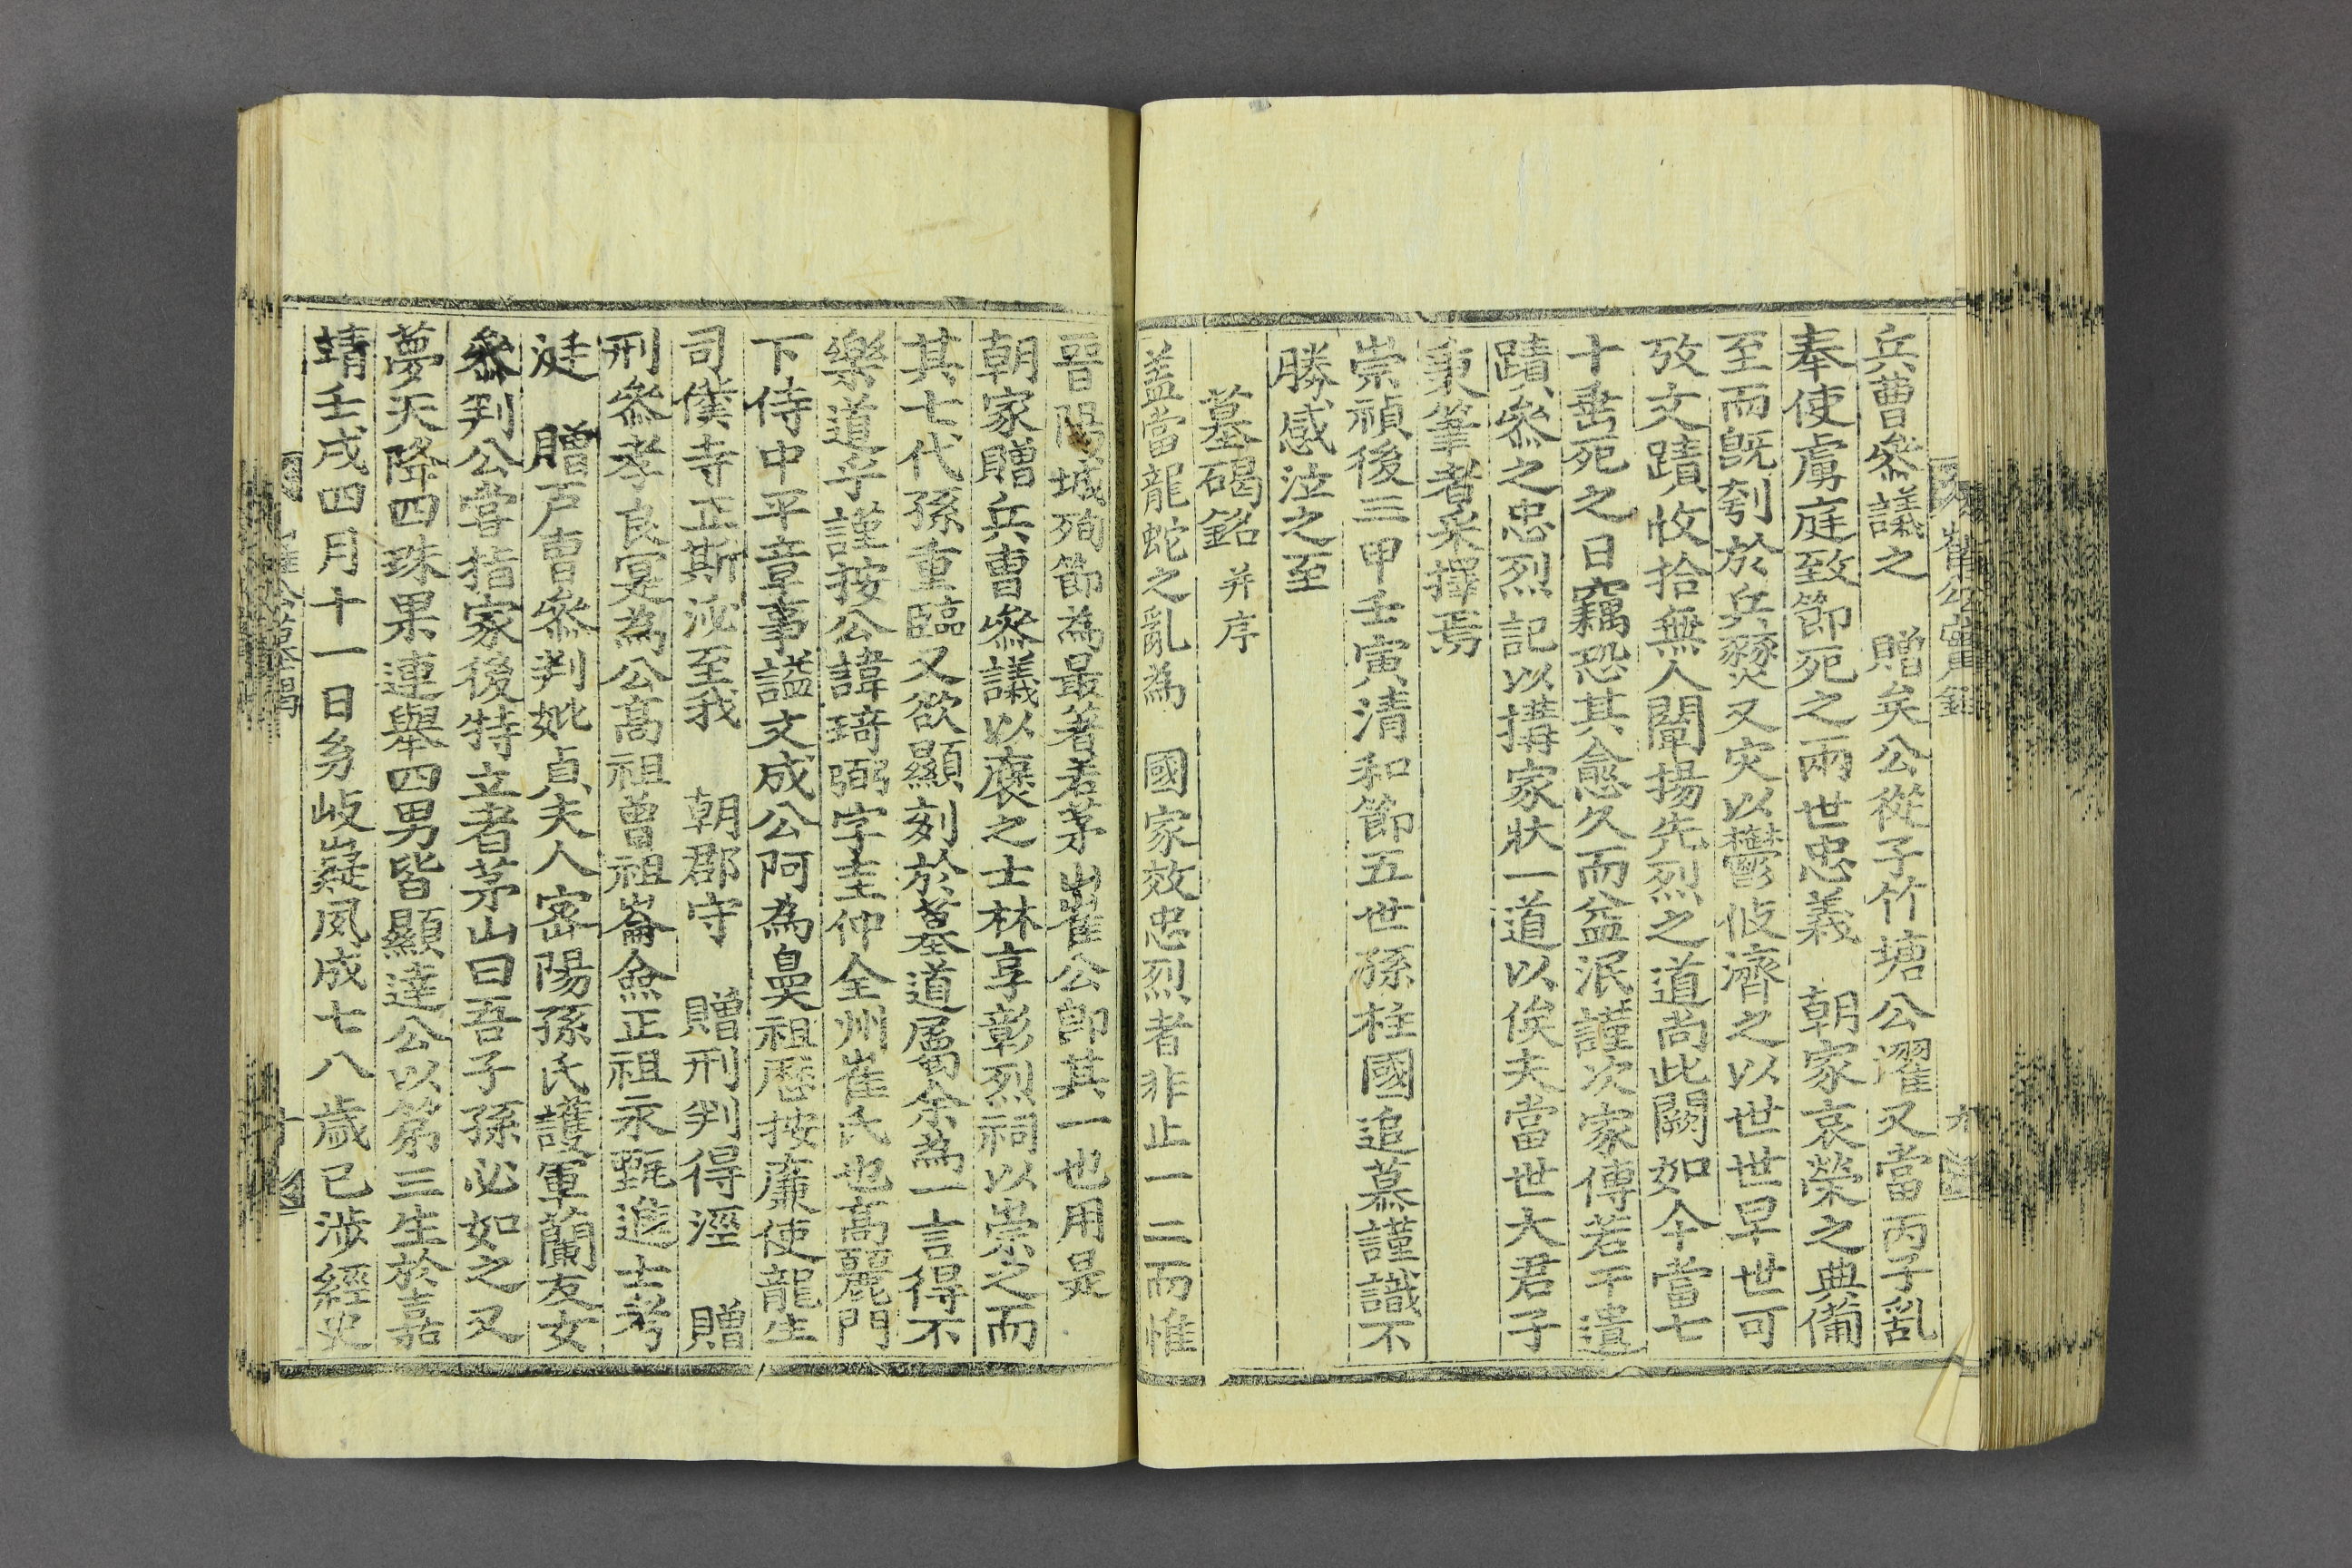 崔公實錄
兵曹參議之 贈矣公從子竹塘公濯又當丙子亂
奉使虜庭致節死之兩世忠義 朝家哀榮之典備
至而旣刳於兵燹又灾以鬱攸濟之以世世早世可
攷文蹟收拾無人闡揚先烈之道尚此闕如今當七
十垂死之日竊恐其愈久而益泯謹次家傳若干遺
蹟參之忠烈記以搆家狀一道以俟夫當世大君子
秉筆者采擇焉
崇禎後三甲壬寅清和節五世孫柱國追慕謹識不
勝感泣之至
墓碣銘 并序
盖當龍蛇之亂為 國家效忠烈者非止一二而惟
晉陽城殉節為最著若茅山崔公卽其一也用是
朝家贈兵曹參議以褒之士林享彰烈祠以崇之而
其七代孫重臨又欲顯刻於墓道屬余為一言得不
樂道乎謹按公諱琦弼字圭仲全州崔氏也高麗門
下侍中平章事謚文成公阿為鼻祖曆按廉使龍生
司僕寺正斯泌至我 朝郡守 贈刑判得涇 贈
刑參孝良寔為公高祖曾祖崙僉正祖永甄進士考
渼 贈戶曹參判妣貞夫人密陽孫氏護軍蘭友女
參判公嘗指家後特立者茅山曰吾子孫必如之又
夢天降四珠果連舉四男皆顯達公以第三生於嘉
靖壬戌四月十一日㓜岐嶷夙成七八歲已涉經史
崔公墓碣